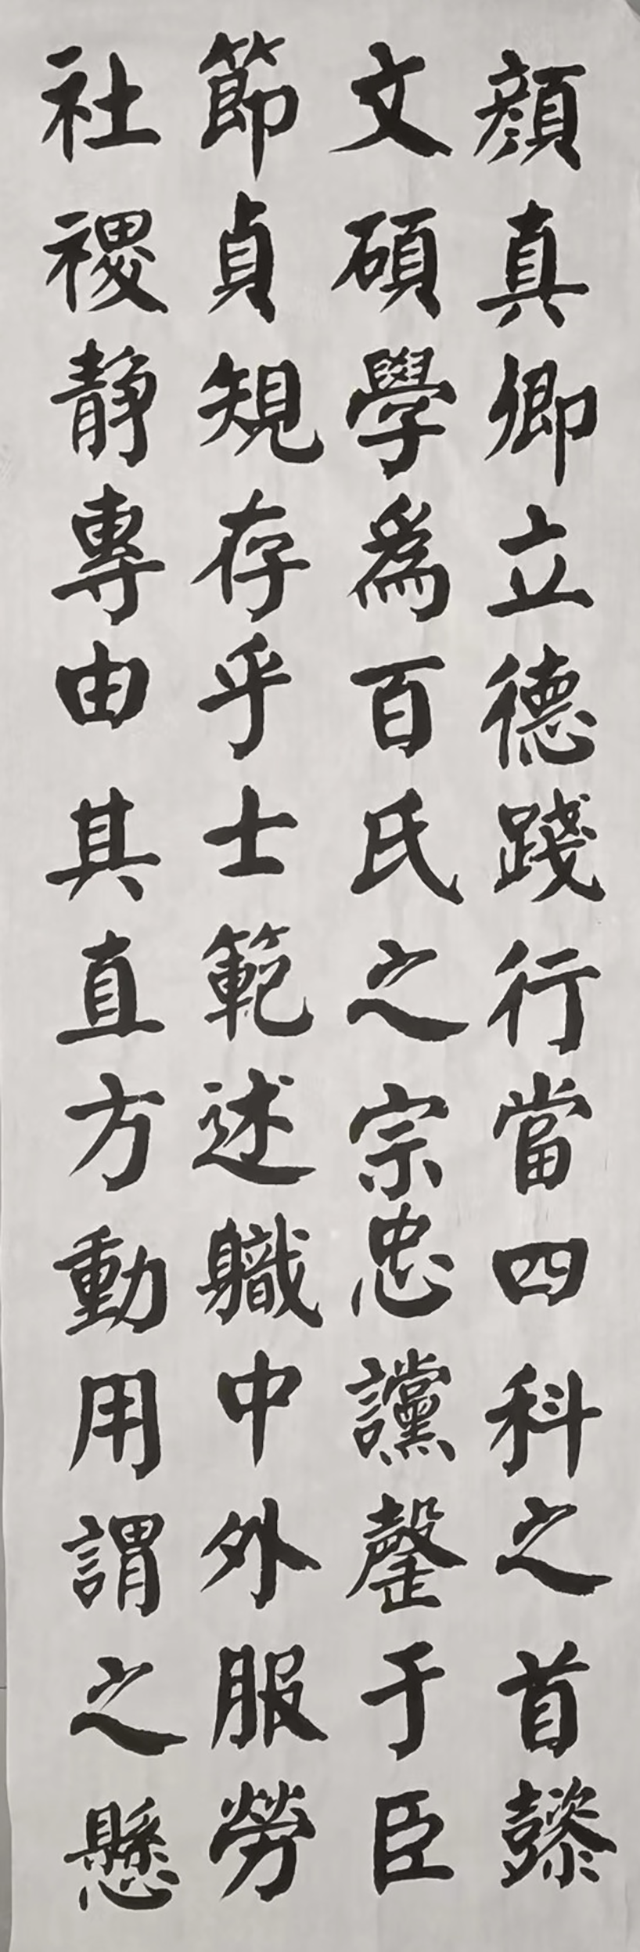 顔真卿立德踐行當四科之首懿
文碩學爲百氏之宗忠讜罄于臣
節貞䂓存乎士範述軄中外服勞
社禝静專由其直方動用謂之懸